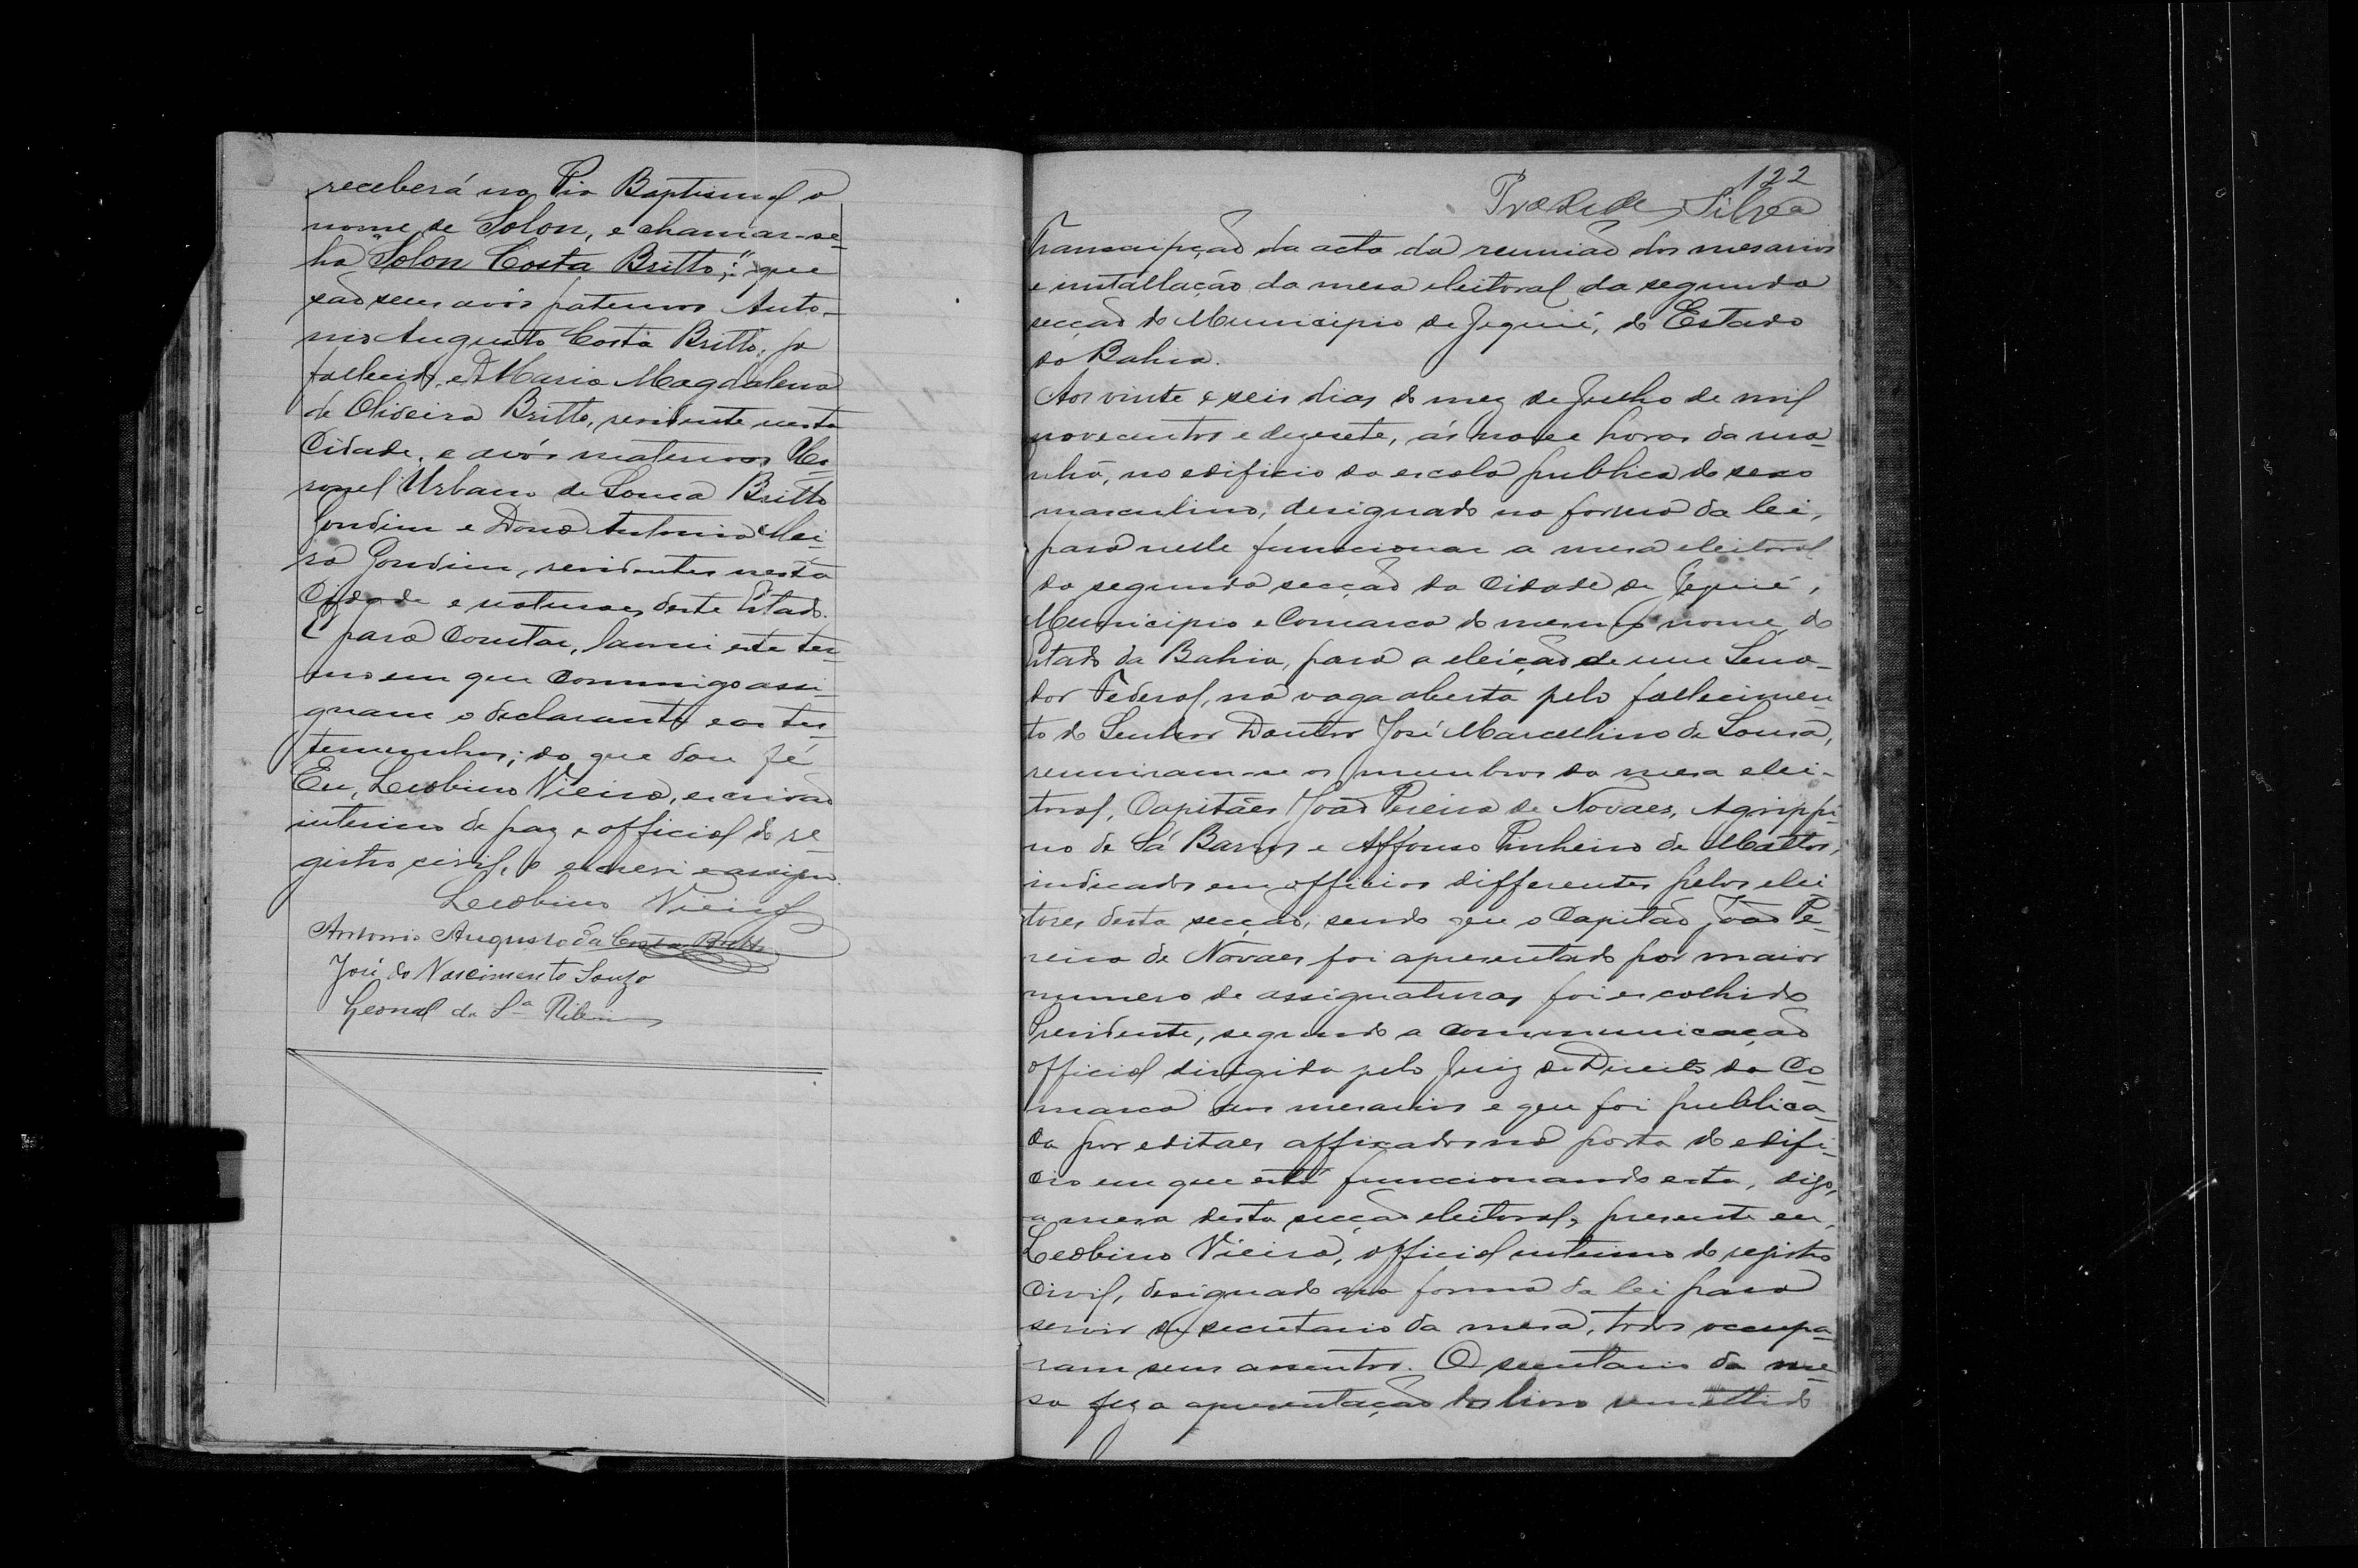 receberá na Pia Baptismal o
nome de Solon, e chamar-se-
ha "Solon Costa Britto;" que
são seus avós paternos Anto-
nio Augusto Costa Britto, ja
fallecido, e D. Maria Magdalena
de Oliveira Britto, residente nesta
Cidade, e avós maternos Co-
ronel Urbano de Souza Britto
Gondim e Dona Antonia Mei-
ra Gondim, residentes nesta
Cidade e naturaes deste Estado.
E para constar, lavrei este ter-
mo em que commigo assi-
gnam o declarante e as tes-
temunhas; do que dou fé
Eu, Leobino Vieira, escrivão
interino de paz e official do re-
gistro civil, o escrevi e assigno.
Leobino Vieira
Antonio Augusto da Costa Britto
José do Nascimento Souza
Leonel da Sª Ribeiro
122
Silva
Transcripção da acta da reunião dos mesarios
e installação da mesa eleitoral da segunda
secção do Municipio de Jequié, do Estado
da Bahia.
Aos vinte e seis dias do mez de Julho de mil
novecentos e dezesete, ás nove horas da ma-
nhã, no edificio da escola publica do sexo
masculino, designado na forma da lei,
para nelle funccionar a mesa eleitoral
da segunda secção da Cidade de Jequié,
Municipio e Comarca do mesmo nome, do
Estado da Bahia, para a eleição de um Sena-
dor Federal, na vaga aberta pelo fallecimen-
to do Senhor Doutor José Marcellino de Sousa,
reuniram-se os membros da mesa elei-
toral, Capitães João Pereira de Novaes, Agrippi-
no de Sá Barros e Affonso Pinheiro de Mattos,
indicados em officios differentes pelos elei-
tores desta secção; sendo que o Capitão João Pe-
reira de Novaes foi apresentado por maior
numero de assignaturas foi escolhido
Presidente, segundo a communicação
official dirigida pelo Juiz de Direito da Co-
marca aos mesarios e que foi publica-
da por editaes affixados na porta do edifi-
cio em que está funccionando esta, digo,
a mesa desta secção eleitoral, presente eu,
Leobino Vieira, official interino do registro
Civil, designado na forma da lei para
servir de secretario da mesa, todos occupa-
ram seus assentos. O secretario da me-
sa fez a apresentação dos livros remettido